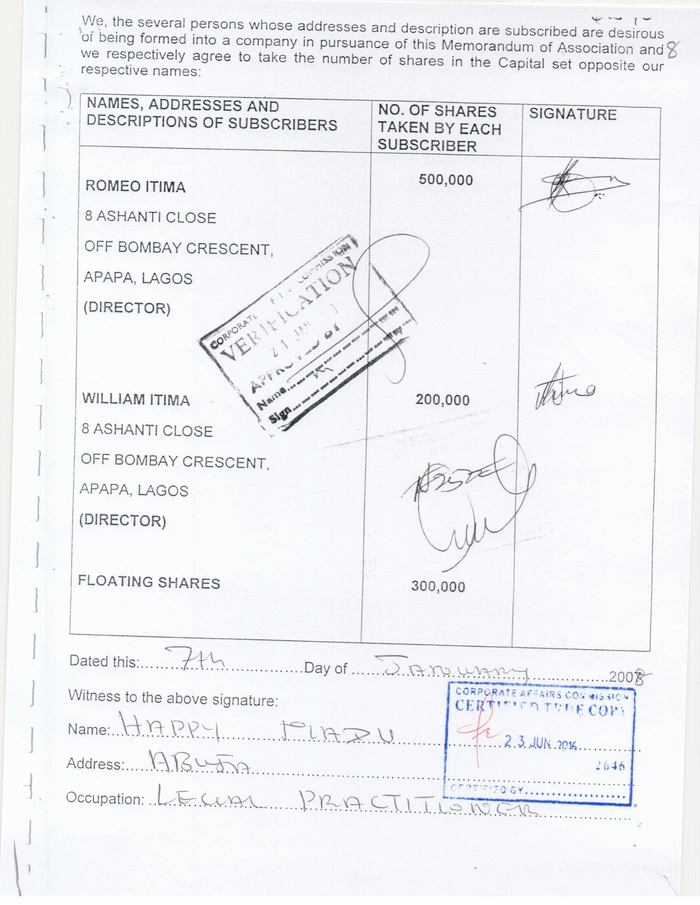 We, the several persons whose addresses and description are subscribed are desirous
of being formed into a company in pursuance of this Memorandum of Association and 8
we respectively agree to take the number of shares in the Capital set opposite our
respective names:
NAMES, ADDRESSES AND DESCRIPTIONS OF SUBSCRIBERS
NO. OF SHARES TAKEN BY EACH SUBSCRIBER
SIGNATURE
ROMEO ITIMA 500,000
8 ASHANTI CLOSE
OFF BOMBAY CRESCENT,
APAPA, LAGOS
(DIRECTOR)
CORPORATE COMMISSION
VERIFICATION
21 JAN
APPROVED BY
Name
Sign
WILLIAM ITIMA 200,000
8 ASHANTI CLOSE
OFF BOMBAY CRESCENT,
APAPA, LAGOS
(DIRECTOR)
FLOATING SHARES 300,000
Dated this: 7th Day of JANUARY 2008
Witness to the above signature:
Name: HAPPY
Address: ABUJA
Occupation: LEGAL PRACTITIONER
CORPORATE AFFAIRS COMMISSION
CERTIFIED TRUE COPY
23 JUN 2016
2646
CERTIFIED BY